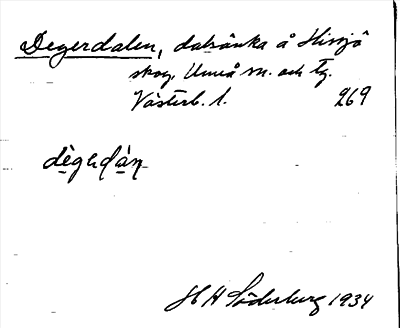 Degerdalen, dalsänka å Hissjö
skog, Umeå sn. och tg.
Västerb. l. 269
dègeɖàṇ
H H Söderburg 1934